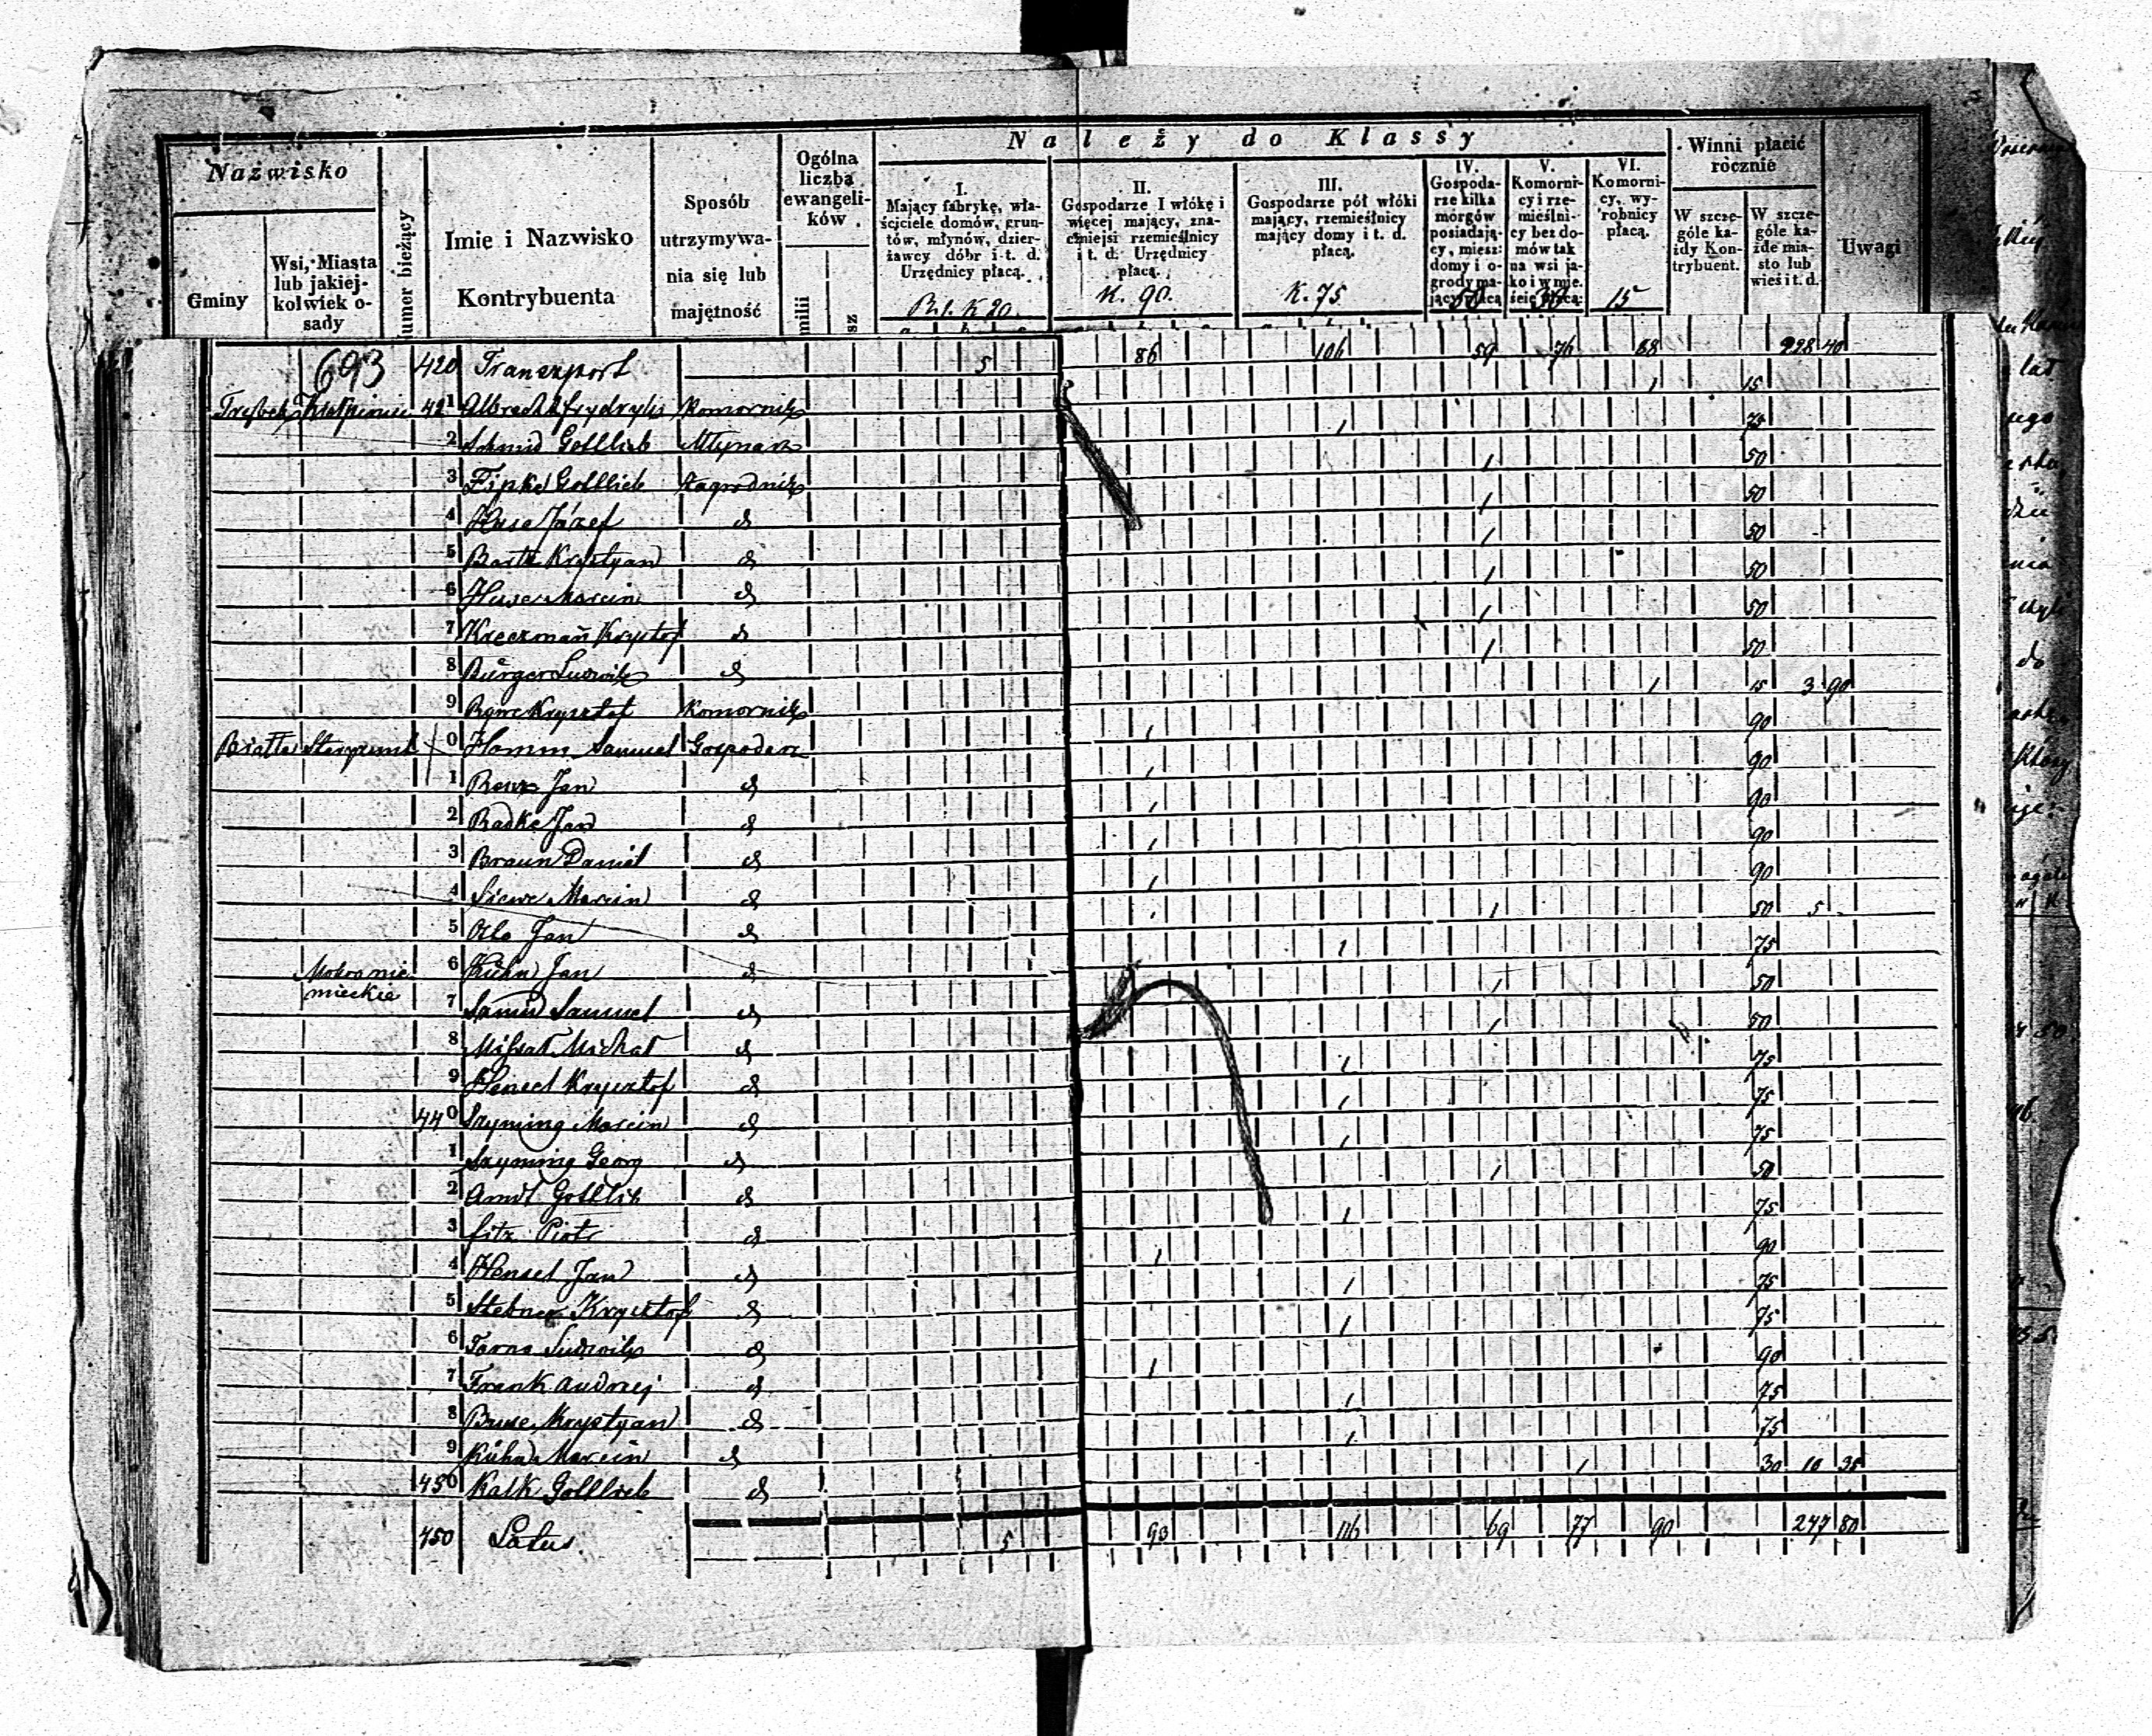 Należy do Klassy
Nazwisko
Gminy
Wsi, Miasta lub jakiej-kolwiek o-sady
umer bieżący
Imie i Nazwisko Kontrybuenta
Sposób utrzymywa-nia się lub majętność
Ogólna liczba ewangeli-ków
milii
sz
I. Mający fabrykę, wła-ściciele domów, grun-tów, młynów, dzier-żawcy dóbr i t. d. Urzędnicy płacą. Rb 1. K 20.
II. Gospodarze I włókę i więcej mający, zna-czniejsi rzemieślnicy i t. d. Urzędnicy płacą. K. 90.
III. Gospodarze pół włóki mający, rzemieślnicy mający domy i t. d. płacą. K. 75
IV. Gospoda-rze kilka morgów posiadają-cy, miesz: domy i o-grody ma-jący płacą 50
V. Komorni-cy i rze-mieślni-cy bez do-mów tak na wsi ja-ko i w mie-ście płacą: 30
VI. Komorni-cy, wy-robnicy płacą. 15
Winni płacić rocznie
W szcze-góle ka-żdy Kon-trybuent.
W szcze-góle ka-żde mia-sto lub wieś i t. d.
Uwagi
693 420 Transport 5 86 106 59 76 88 228 40
421 Albrecht Frydryk Komornik 1 15
2 Schmid Gottlieb Młynarz 1 75
3 Zipke Gottlieb Zagrodnik 1 50
4 Kuse Józef d 1 50
5 Bartz Krystyan d 1 50
6 Huse Marcin d 1 50
7 Kreczman Krysztof d 1 50
8 Bürger Ludwik d 1 50
9 Krysztof Komornik 1 15 3 90
0 Hamm Samuel Gospodarz 1 90
1 Jan d 1 90
2 Radke Jan d 1 90
3 Braun Daniel d 1 90
4 Marcin d 1 90
5 Otto Jan d 1 50 5
Mokronie mieckie 6 Kühn Jan d 1 75
7 Samuel d 1 50
8 Michał d 1 50
9 Hensel Krysztof d 1 75
440 Szyming Marcin d 1 75
1 Szyming Georg d 1 75
2 Arndt Gottlib d 1 50
3 Fitz Piotr d 1 75
4 Hensel Jan d 1 90
5 Stebner Krysztof d 1 75
6 Ludwik d 1 75
7 Frank Andrzej d 1 90
8 Buse Krystyan d 1 75
9 Kühn Marcin d 1 75
450 Kalk Gottlieb d 1 30 10 35
450 Latus. 5 93 116 69 77 90 247 80